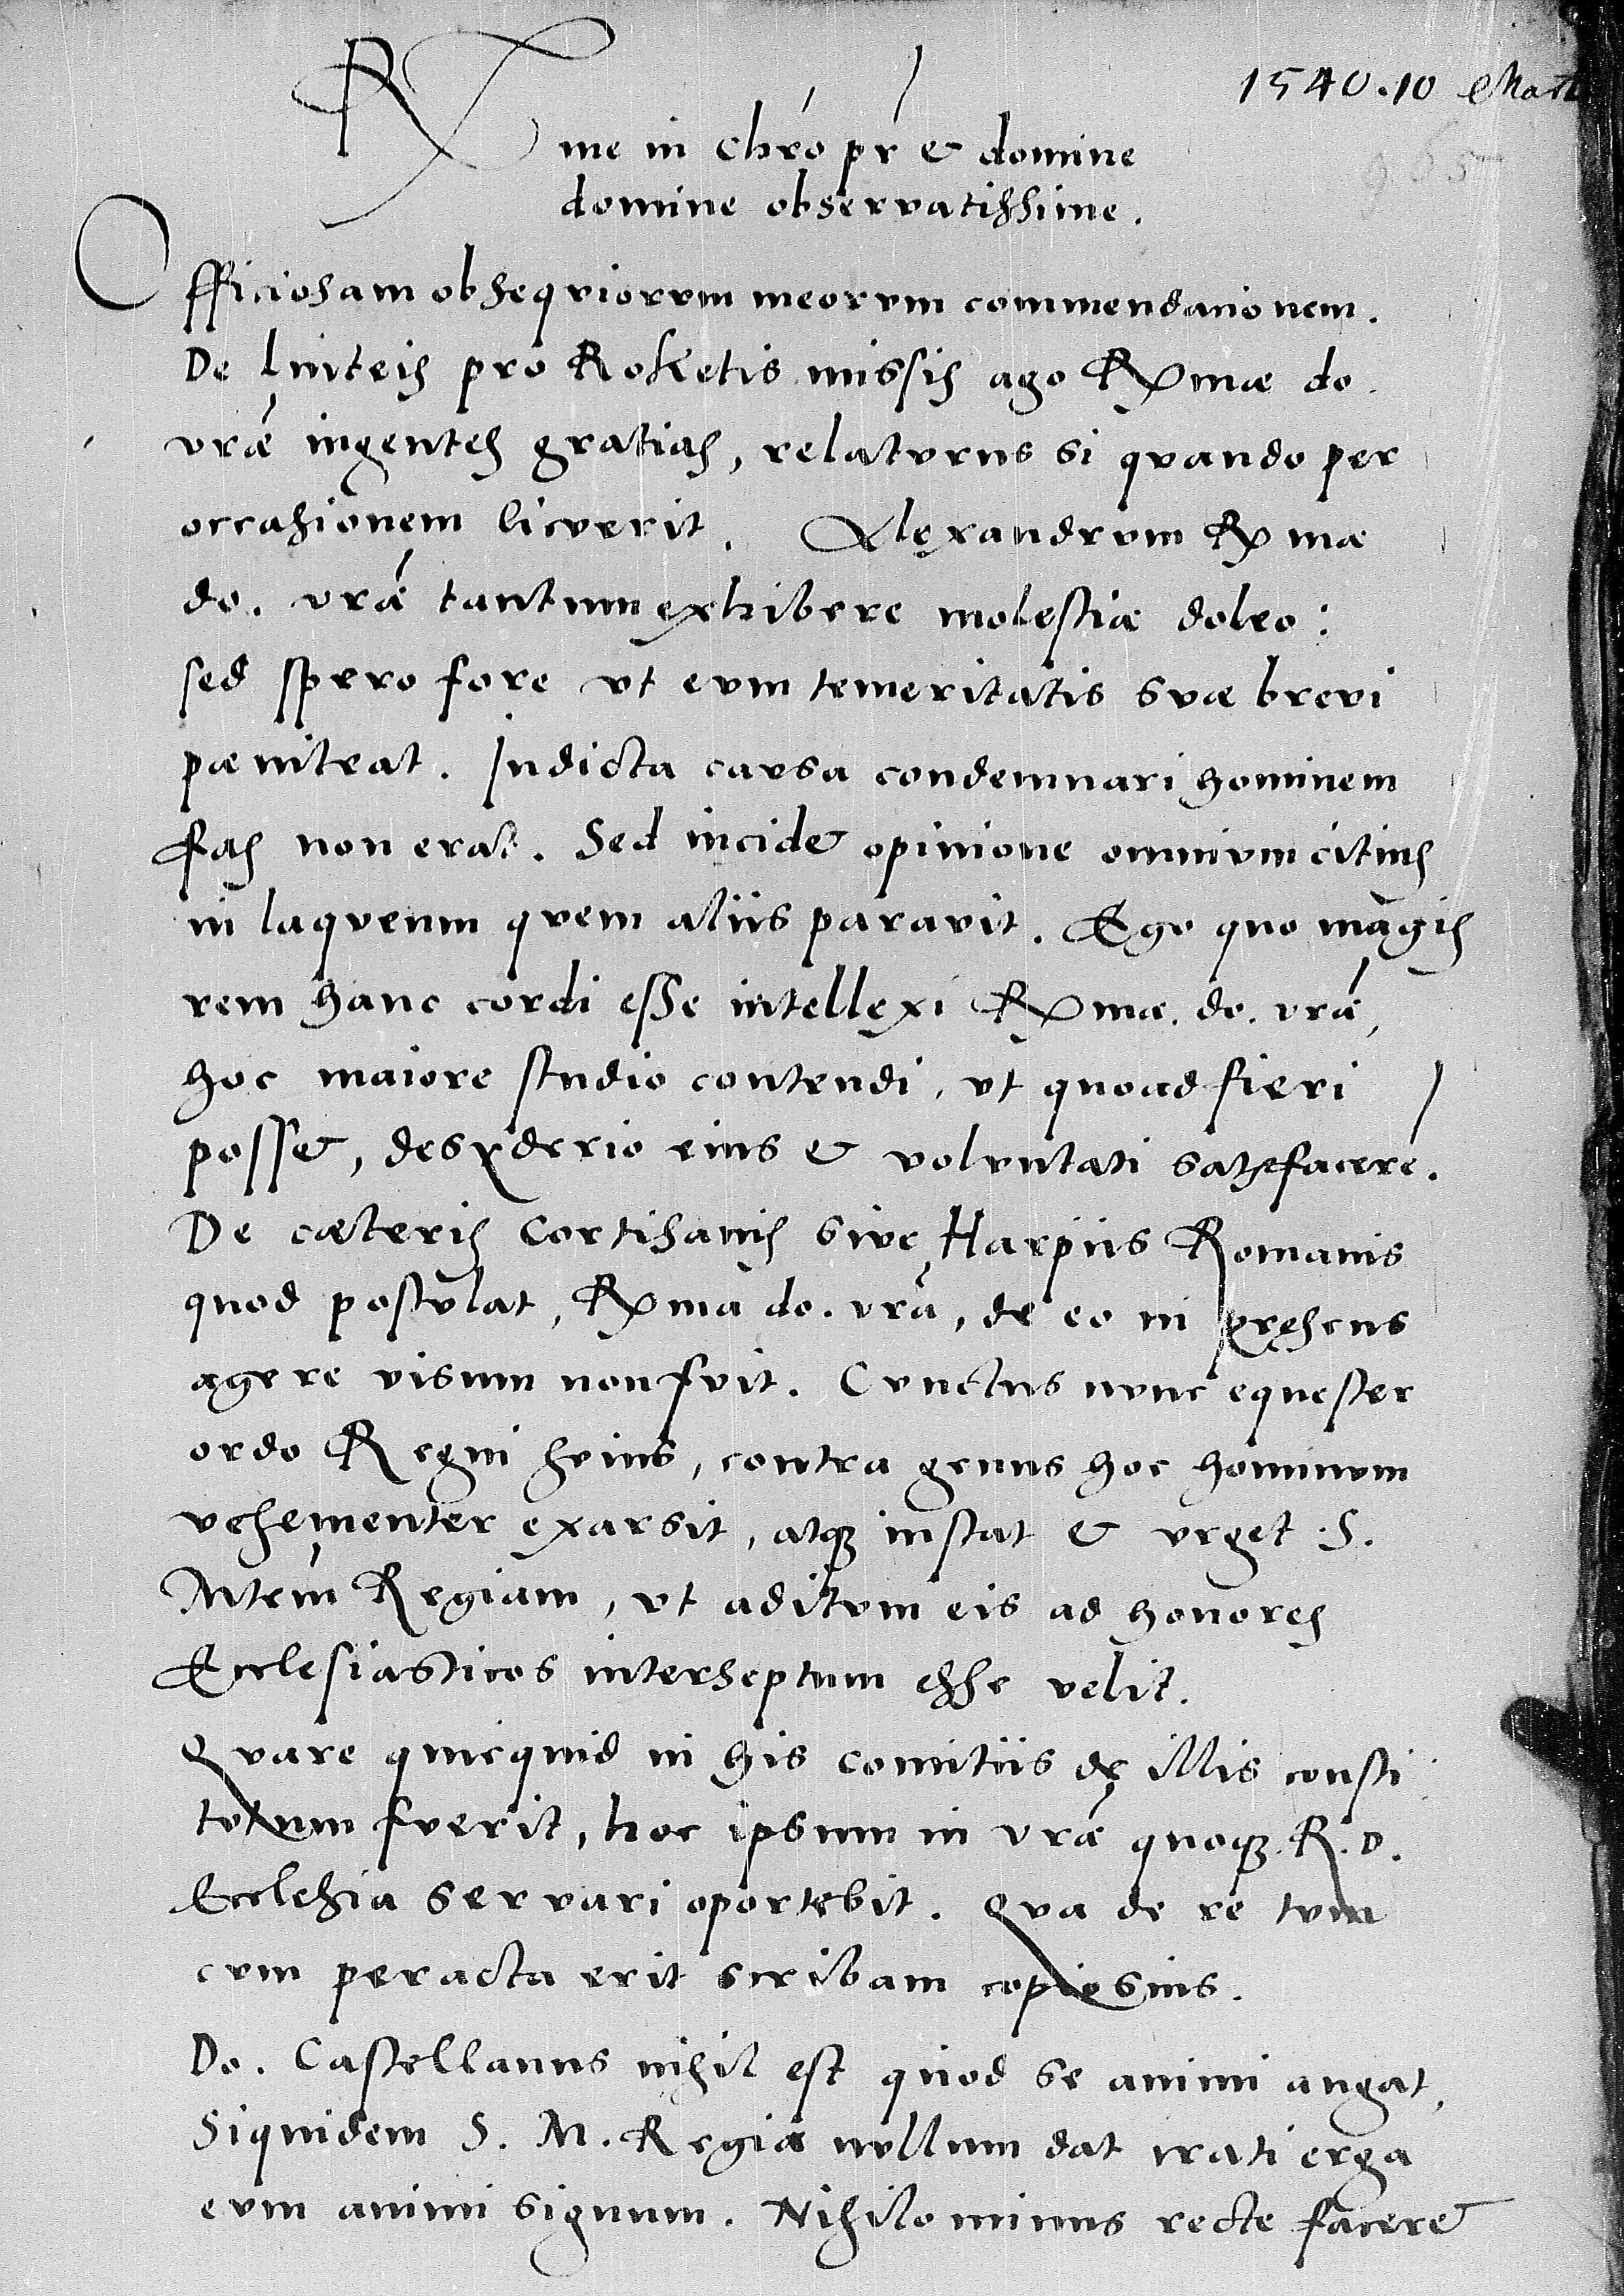 1540.10 Mart
965
R
me in Chr̄o pr̄ & domine
domine observatissime.
Officiosam obsequiorum meorum commendationem.
De linteis pro Roketis missis ago Rmae do.
vrae ingentes gratias, relaturus si quando per
occasionem licuerit. Alexandrum Rmae
do. vrae tantum exhibere molestiae doleo:
sed spero fore ut eum temeritatis suae brevi
paeniteat. Indicta causa condemnari hominem
fas non erat. Sed incidet opinione omnium citius
in laqueum quem aliis paravit. Ego quo magis
rem hanc cordi esse intellexi Rmae. do. vrae,
hoc maiore studio contendi, ut quoad fieri
posset, desyderio eius & voluntati satisfacere.
De caeteris Cortisanis sive Harpiis Romanis
quod postulat, Rma do. vra, de eo in praesens
agere visum non fuit. Cunctus nunc equester
ordo Regni huius, contra genus hoc hominum
vehementer exarsit, atq; instat & urget S.
Mtem Regiam, ut aditum eis ad honores
Ecclesiasticos interseptum esse velit.
Quare quicquid in his comitiis de illis consti
tutum fuerit, hoc ipsum in vra quoq; R. D.
Ecclesia servari oportebit. Qua de re tum
cum peracta erit scribam copiosius.
Do. Castellanus nihil est quod se animi angat,
Siquidem S. M. Regia nullum dat irati erga
eum animi signum. Nihilominus recte faceret